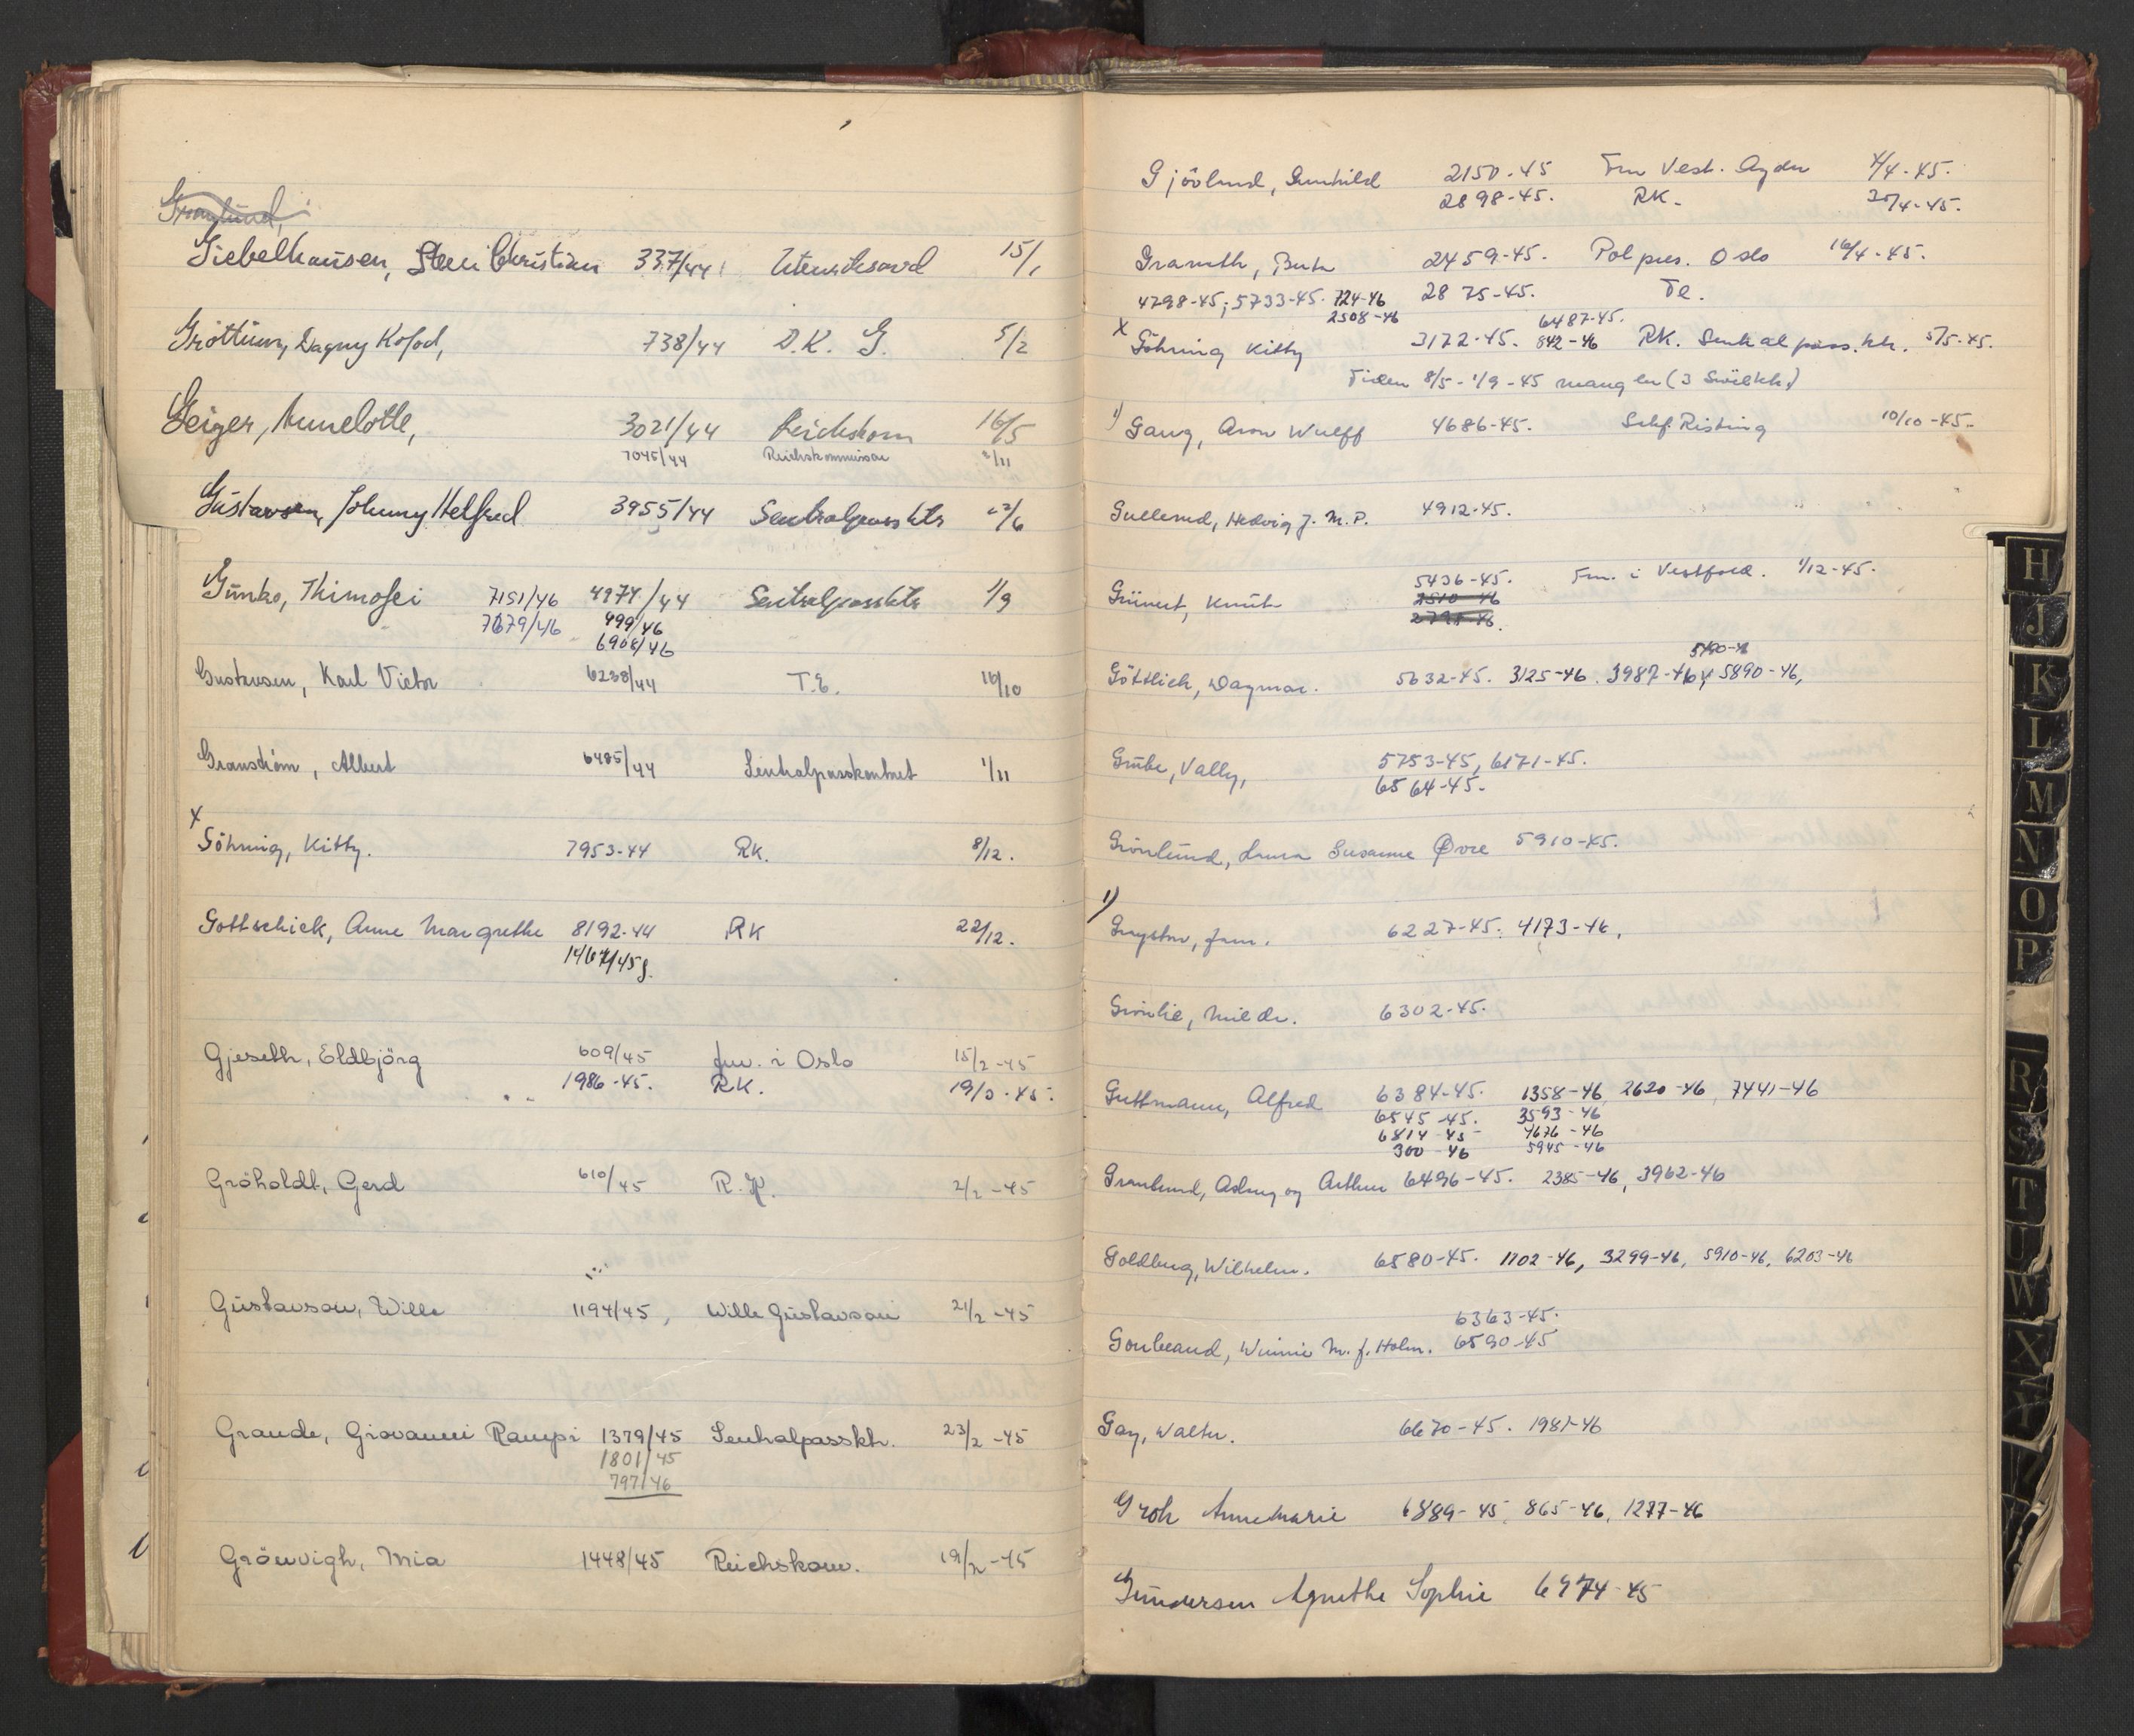 Giebelhausen, Christian 337/44 15/1
Gröttum, Dagny Kofod, 738/44 D.K. G. 5/2
Geiger, Annelotte, 3021/44 Reichskom 16/5
7045/44 Reichskommissar /11
Gustavsen, Johnny Helfred 3955/44 Sentralpasskts /6
Gunko, Thimofei 7151/46 4974/44 Sentralpasskts 1/9
7679/46 499/46
6908/46
Gustavsen, Karl Victor 6238/44 T.E. 16/10
Granström, Albert 6485/44 Sentralpasskontoret 1/11
x
Göhring, Kitty. 7953-44 RK. 8/12.
Gottschick, Anne Margrethe 8192-44 RK 22/12.
1467/45
Gjeseth, Eldbjörg 609/45 fm. i Oslo 15/2 -45
1986-45. RK. 19/3-45.
Gröholdt, Gerd 610/45 R.K. 2/2 -45
Gustavson, Wille 1194/45, Wille Gustavson 21/2 -45
Grande, Giovanni Rampi 1379/45 Sentralpassktr. 23/2 -45
1801/45
797/46
Grönvigh, Mia 1448/45 Reichskom. 19/2 -45
Gjövlund, Gunhild 2150-45 Fm Vest. Agder 4/4-45.
2898-45. RK. 25/4-45.
2459-45. Pol pres. Oslo 16/4-45.
4798-45; 5733-45. 724-46 2875-45. Te.
2508-46 6487-45.
x Göhring Kitty 3172-45. 842-46 RK. Sentralpass.ktr. 5/5-45.
Tiden 8/5 - 1/9 -45 mangler
1) Gang, Aron Wulff 4686-45. Schf. Risting 10/10-45.
Gullerud, Hedvig J. M. P. 4912-45.
5436-45. Fm. i Vestfold. 1/12-45.
Grünert, Knut 2510-46
5190-46
Göttlich, Dagmar. 5632-45. 3125-46. 3987-46, 5890-46,
Grube, Vally, 5753-45, 6171-45.
6564-45.
Grönlund, Laura Susanne Øvre 5910-45.
1)
6227-45. 4173-46.
Grönlie, 6302-45.
Guttmann, Alfred 6384-45. 1358-46, 2620-46, 7441-46
6545-45. 3593-46
6814-45 4676-46
300-46 5945-46
Granlund, Aslaug og Arthur 6496-45. 2385-46, 3962-46
Goldberg, Wilhelm. 6580-45. 1102-46, 3299-46, 5910-46, 6203-46
6363-45.
Goubeaud, Winnie M. f. Holm. 6590-45
Gay, Walter. 6670-45. 1981-46
Groh Annemarie 6889-45, 865-46, 1277-46
Gundersen Agnethe Sophie 6974-45
H
J
K
L
M
N
O
P
R
S
T
U
W
X
Y